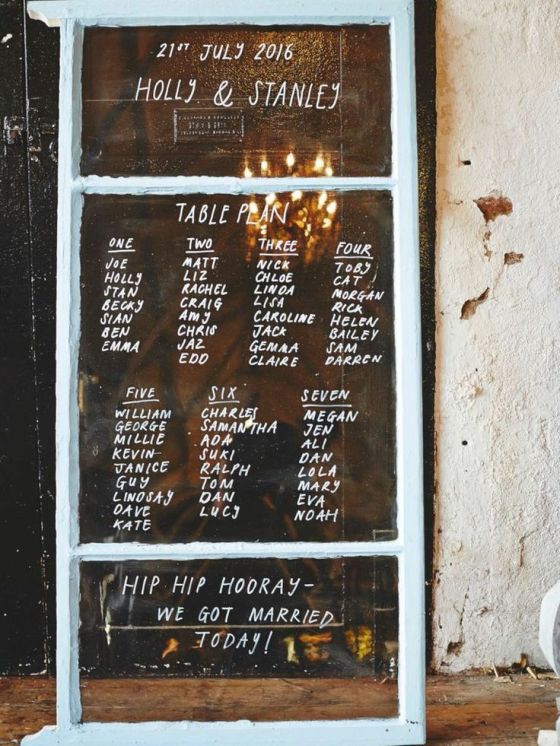 21ST JULY 2016
HOLLY & STANLEY
TABLE PLAN
ONE
JOE
HOLLY
STAN
BECKY
SIAN
BEN
EMMA
TWO
MATT
LIZ
RACHEL
CRAIG
AMY
CHRIS
JAZ
EDD
THREE
NICK
CHLOE
LINDA
LISA
CAROLINE
JACK
GEMMA
CLAIRE
FOUR
TOBY
CAT
MORGAN
RICK
HELEN
BAILEY
SAM
DARREN
FIVE
WILLIAM
GEORGE
MILLIE
KEVIN
JANICE
GUY
LINDSAY
DAVE
KATE
SIX
CHARLES
SAMANTHA
ADA
SUKI
RALPH
TOM
DAN
LUCY
SEVEN
MEGAN
JEN
ALI
DAN
LOLA
MARY
EVA
NOAH
HIP HIP HOORAY-
WE GOT MARRIED
TODAY!